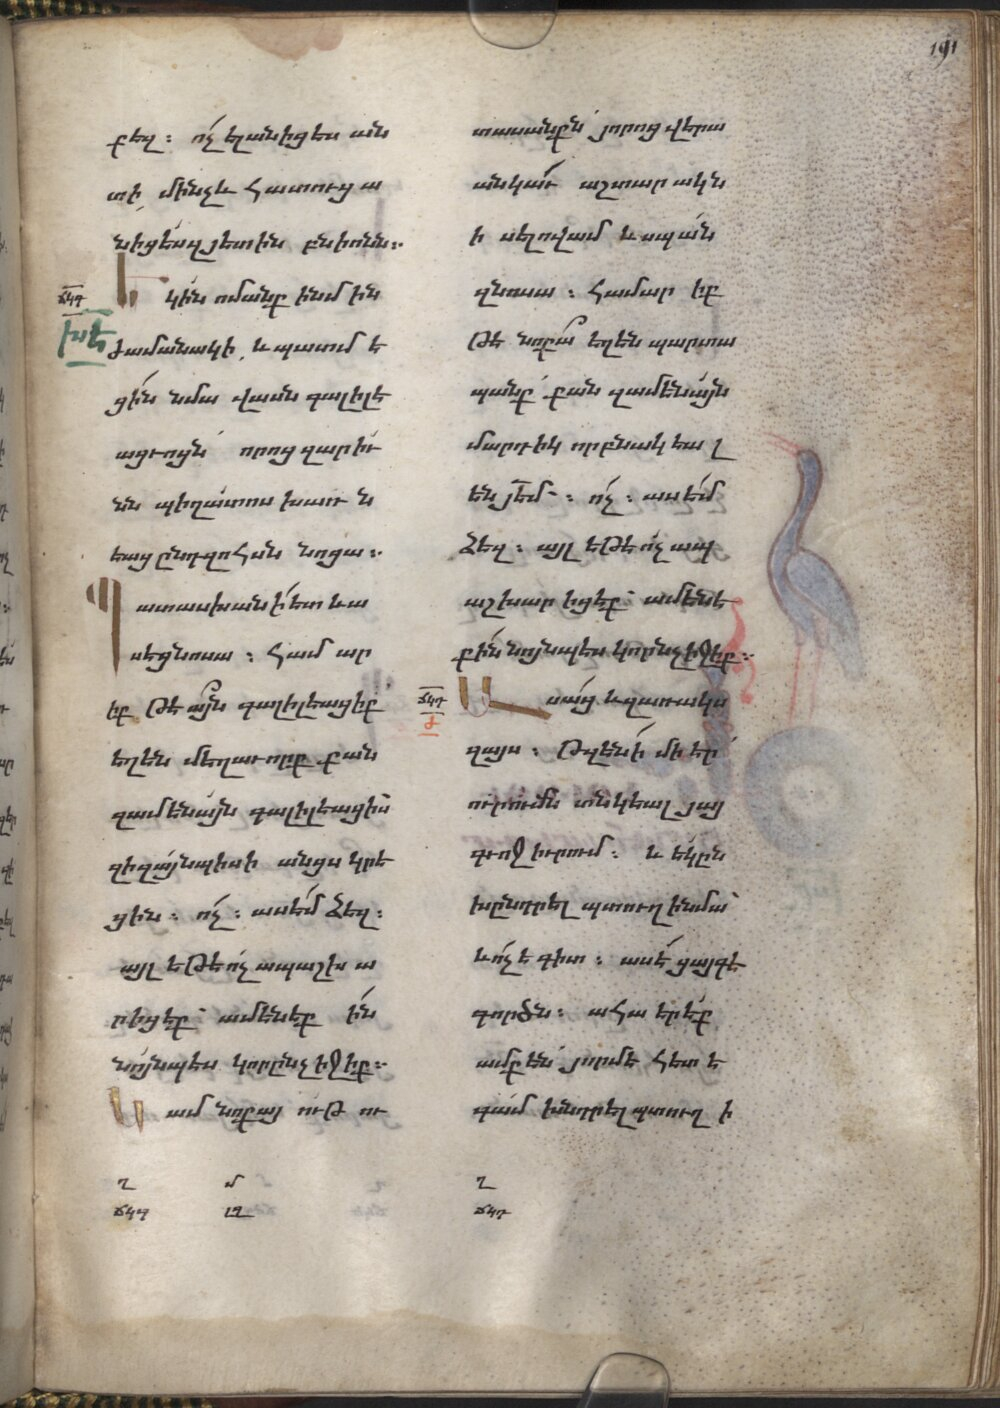 191
քեզ : ոչ ելանիցես ան
տի մինչև հատուց ա
նիցես զյետին բնիոնն :
ՃԿԳ
Եկին ոմանք ինմ ին
ԽԵ
ժամանակի, և պատմ ե
ցին նմա վասն գալիլե
ացւոցն որոց զարիւ
նն պիղատոս խառ ն
եաց ընդ զոհսն նոցա :
Պատասխանի ետ ևա
սէցնոսա : համ ար
իք թե այն գալիլեացիք
եղեն մեղաւորք քան
զամենայն գալիլեացիս
զի զայնպիսի անցս կրե
ցին : ոչ : ասեմ ձեզ :
այլ եթե ոչ ապաշխ ա
րիցեք ամենեք ին
նոյնպես կորընչ իջիք :
Կամ նոքայ ութ ու
տասանքն յորոց վերա
անկաւ աշտար ակն
ի սելովամ և սպան
զնոսա : համար իք
թե նոքա եղեն պարտա
պանք քան զամենայն
մարդիկ որ բնակ եալ
են յեմ : ոչ : ասեմ
ձեզ : այլ եթե ոչ ապ
աշխար իցեք ամենե
քին նոյնպես կորընչ իջիք :
ՃԿԴ
Ասաց և զառակս
զայս : թզենի մի եր
ուրումն տնկեալ յայ
գւոջ իւրում : և եկըն
խընդրել պտուղ ինմա
և ոչ ե գիտ : ասե ցայգե
գործն : ահա երեք
ամք են յորմե հետ ե
գամ խնդրել պտուղ ի
Ղ Մ Ղ
ՃԿԳ ՃԿԴ